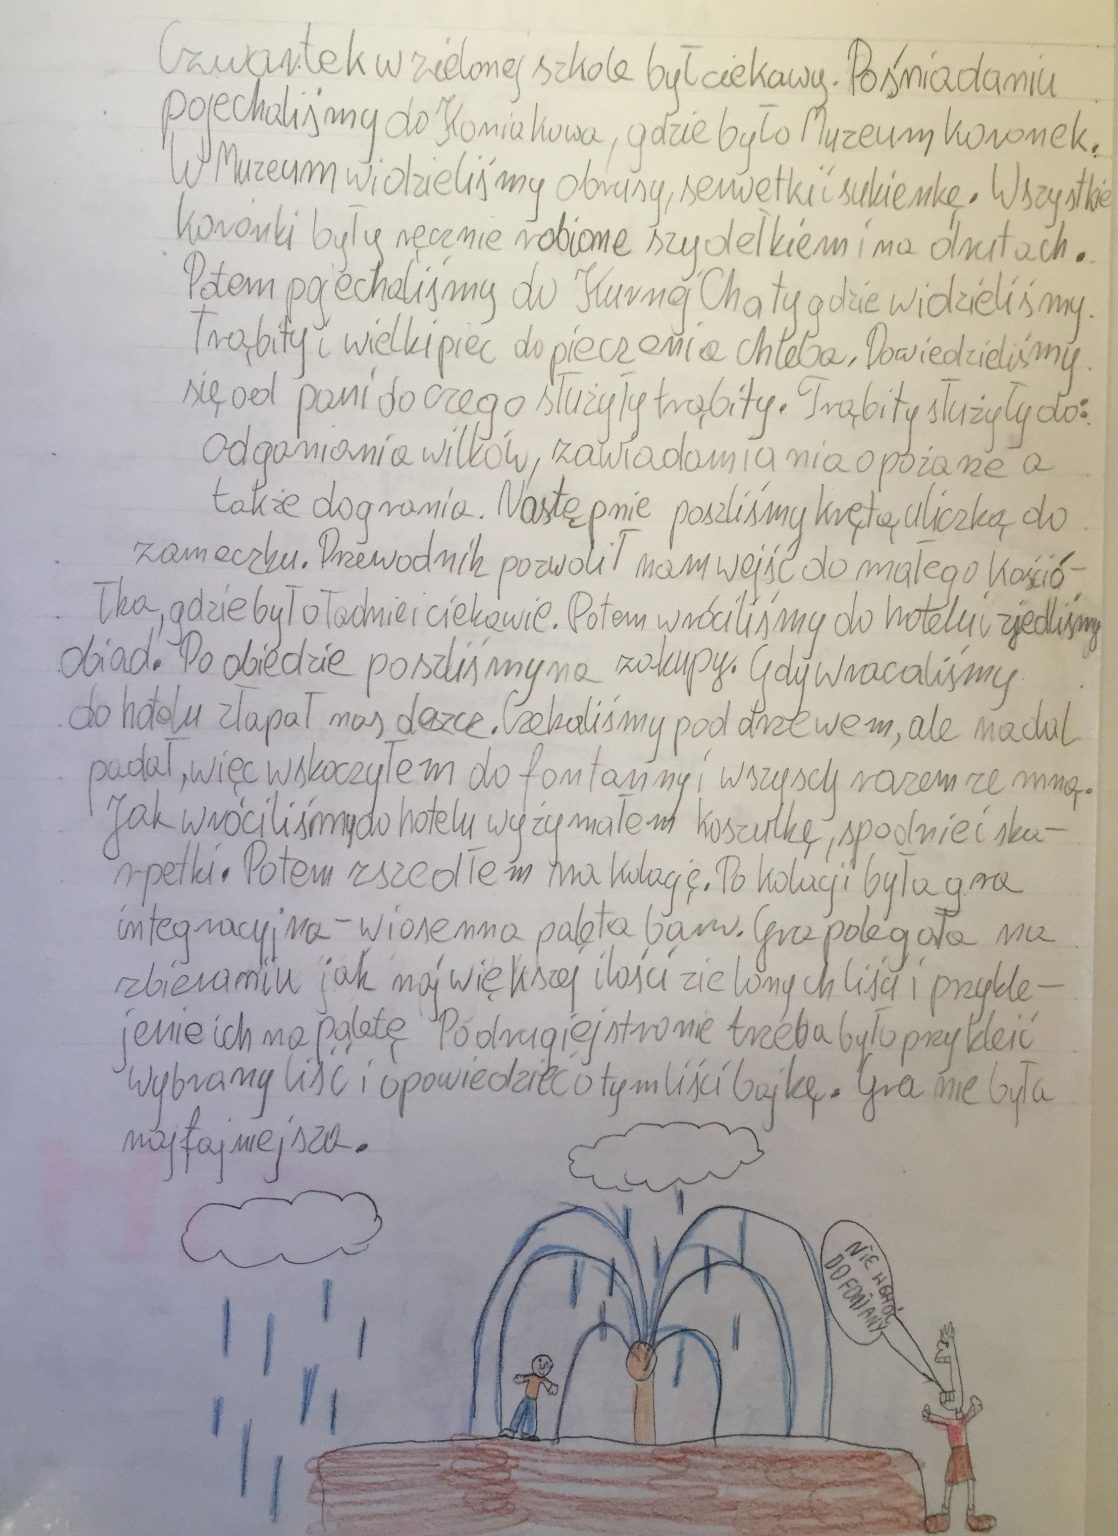 Czwartek w zielonej szkole był ciekawy. Pośniadaniu
pojechaliśmy do Koniakowa, gdzie było Muzeum koronek.
W Muzeum widzieliśmy obrusy, serwetki i sukienkę. Wszystkie
koronki były ręcznie robione szydełkiem i na drutach.
Potem pojechaliśmy do Kurnej Chaty gdzie widzieliśmy
Trąbity i wielki piec do pieczenia chleba. Dowiedzieliśmy
się od pani do czego służyły trąbity. Trąbity służyły do:
odganiania wilków, zawiadamiania o pożarze a
także do grania. Następnie poszliśmy krętą uliczką do
zameczku. Przewodnik pozwolił nam wejść do małego kośció-
łka, gdzie było ładnie i ciekawie. Potem wróciliśmy do hotelu i zjedliśmy
obiad. Po obiedzie poszliśmy na zakupy. Gdy wracaliśmy
do hotelu złapał nas deszcz. Czekaliśmy pod drzewem, ale nadal
padał, więc wskoczyłem do fontanny i wszyscy razem ze mną.
Jak wróciliśmy do hotelu wyżymałem koszulkę, spodnie i ska-
rpetki. Potem zszedłem na kolację. Po kolacji była gra
integracyjna - wiosenna paleta barw. Gra polegała na
zbieraniu jak największej ilości zielonych liści i przykle-
jenie ich na paletę Po drugiej stronie trzeba było przykleić
wybrany liść i opowiedzieć o tym liści bajkę. Gra nie była
najfajniejsza.
NIE
DO FONTANY